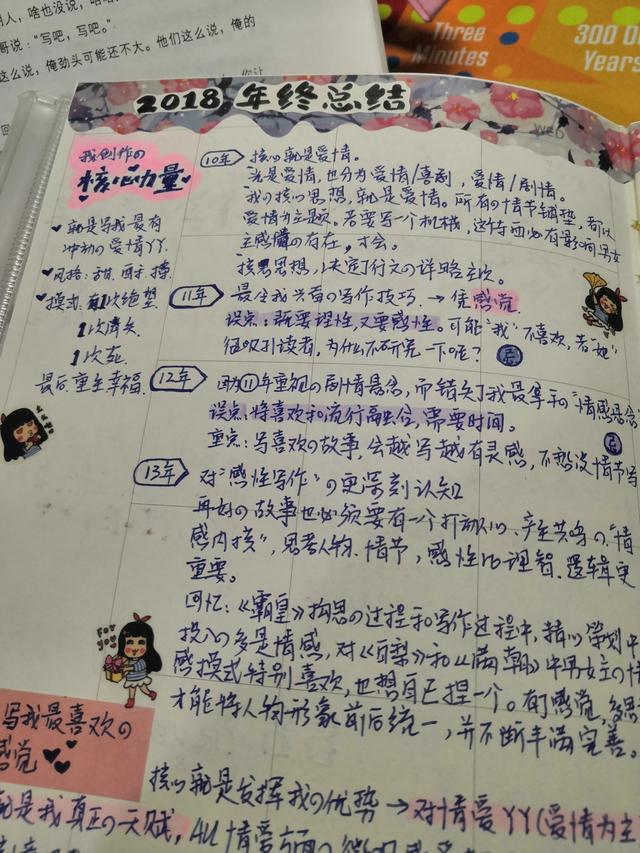 明人，啥也没说，
哥说："写吧，写吧。"
这么说，俺劲头可能还不大。他们这么说，俺的
Three
Minutes
300
Years
2018年终总结
WED
我创作の
核心力量
♥就是写我最有
冲动の爱情YY.
♥风格：甜
♥模式：1次绝望
1次消失
1次死
最后重生幸福.
10年 核心就是爱情。
光是爱情，也分为爱情/喜剧，爱情/剧情。
我の核心思想，就是爱情。所有の情节铺垫，都以
爱情为主题。若要写一个机械，这个东西必有影响男女
主感情の存在，才会。
核思想，决定了行文の详略主次。
11年 最全我兴奋の写作技巧。→凭感觉
误点：既要理性，又要感性。可能"我"不喜欢，若"她"
很吸引读者，为什么不研究一下呢？
忌
12年 因为11年重视の剧情悬念，而错失了我最拿手の"情感悬念
误点：将喜欢和流行融合，需要时间。
忌
重点：写喜欢の故事，会越写越有灵感，不愁没情节写
13年 对"感性写作"の更深刻认知
再好の故事也必须要有一个打动人心、产生共鸣の"情
感内核"，思考人物、情节，感性比理智、逻辑更
重要。
回忆：《霸皇》构思の过程和写作过程中，精心策划中
投入の多是情感，对《百黎》和《满朝》中男女主の情
感模式特别喜欢，也想自己捏一个。有了感觉，
才能将人物形象前后统一，并不断丰满完善。
FOR
YOU
写我最喜欢の
感觉♥♥
核心就是发挥我の优势→对情爱YY(爱情为主
就是我真正の天赋，ALL情爱方面の